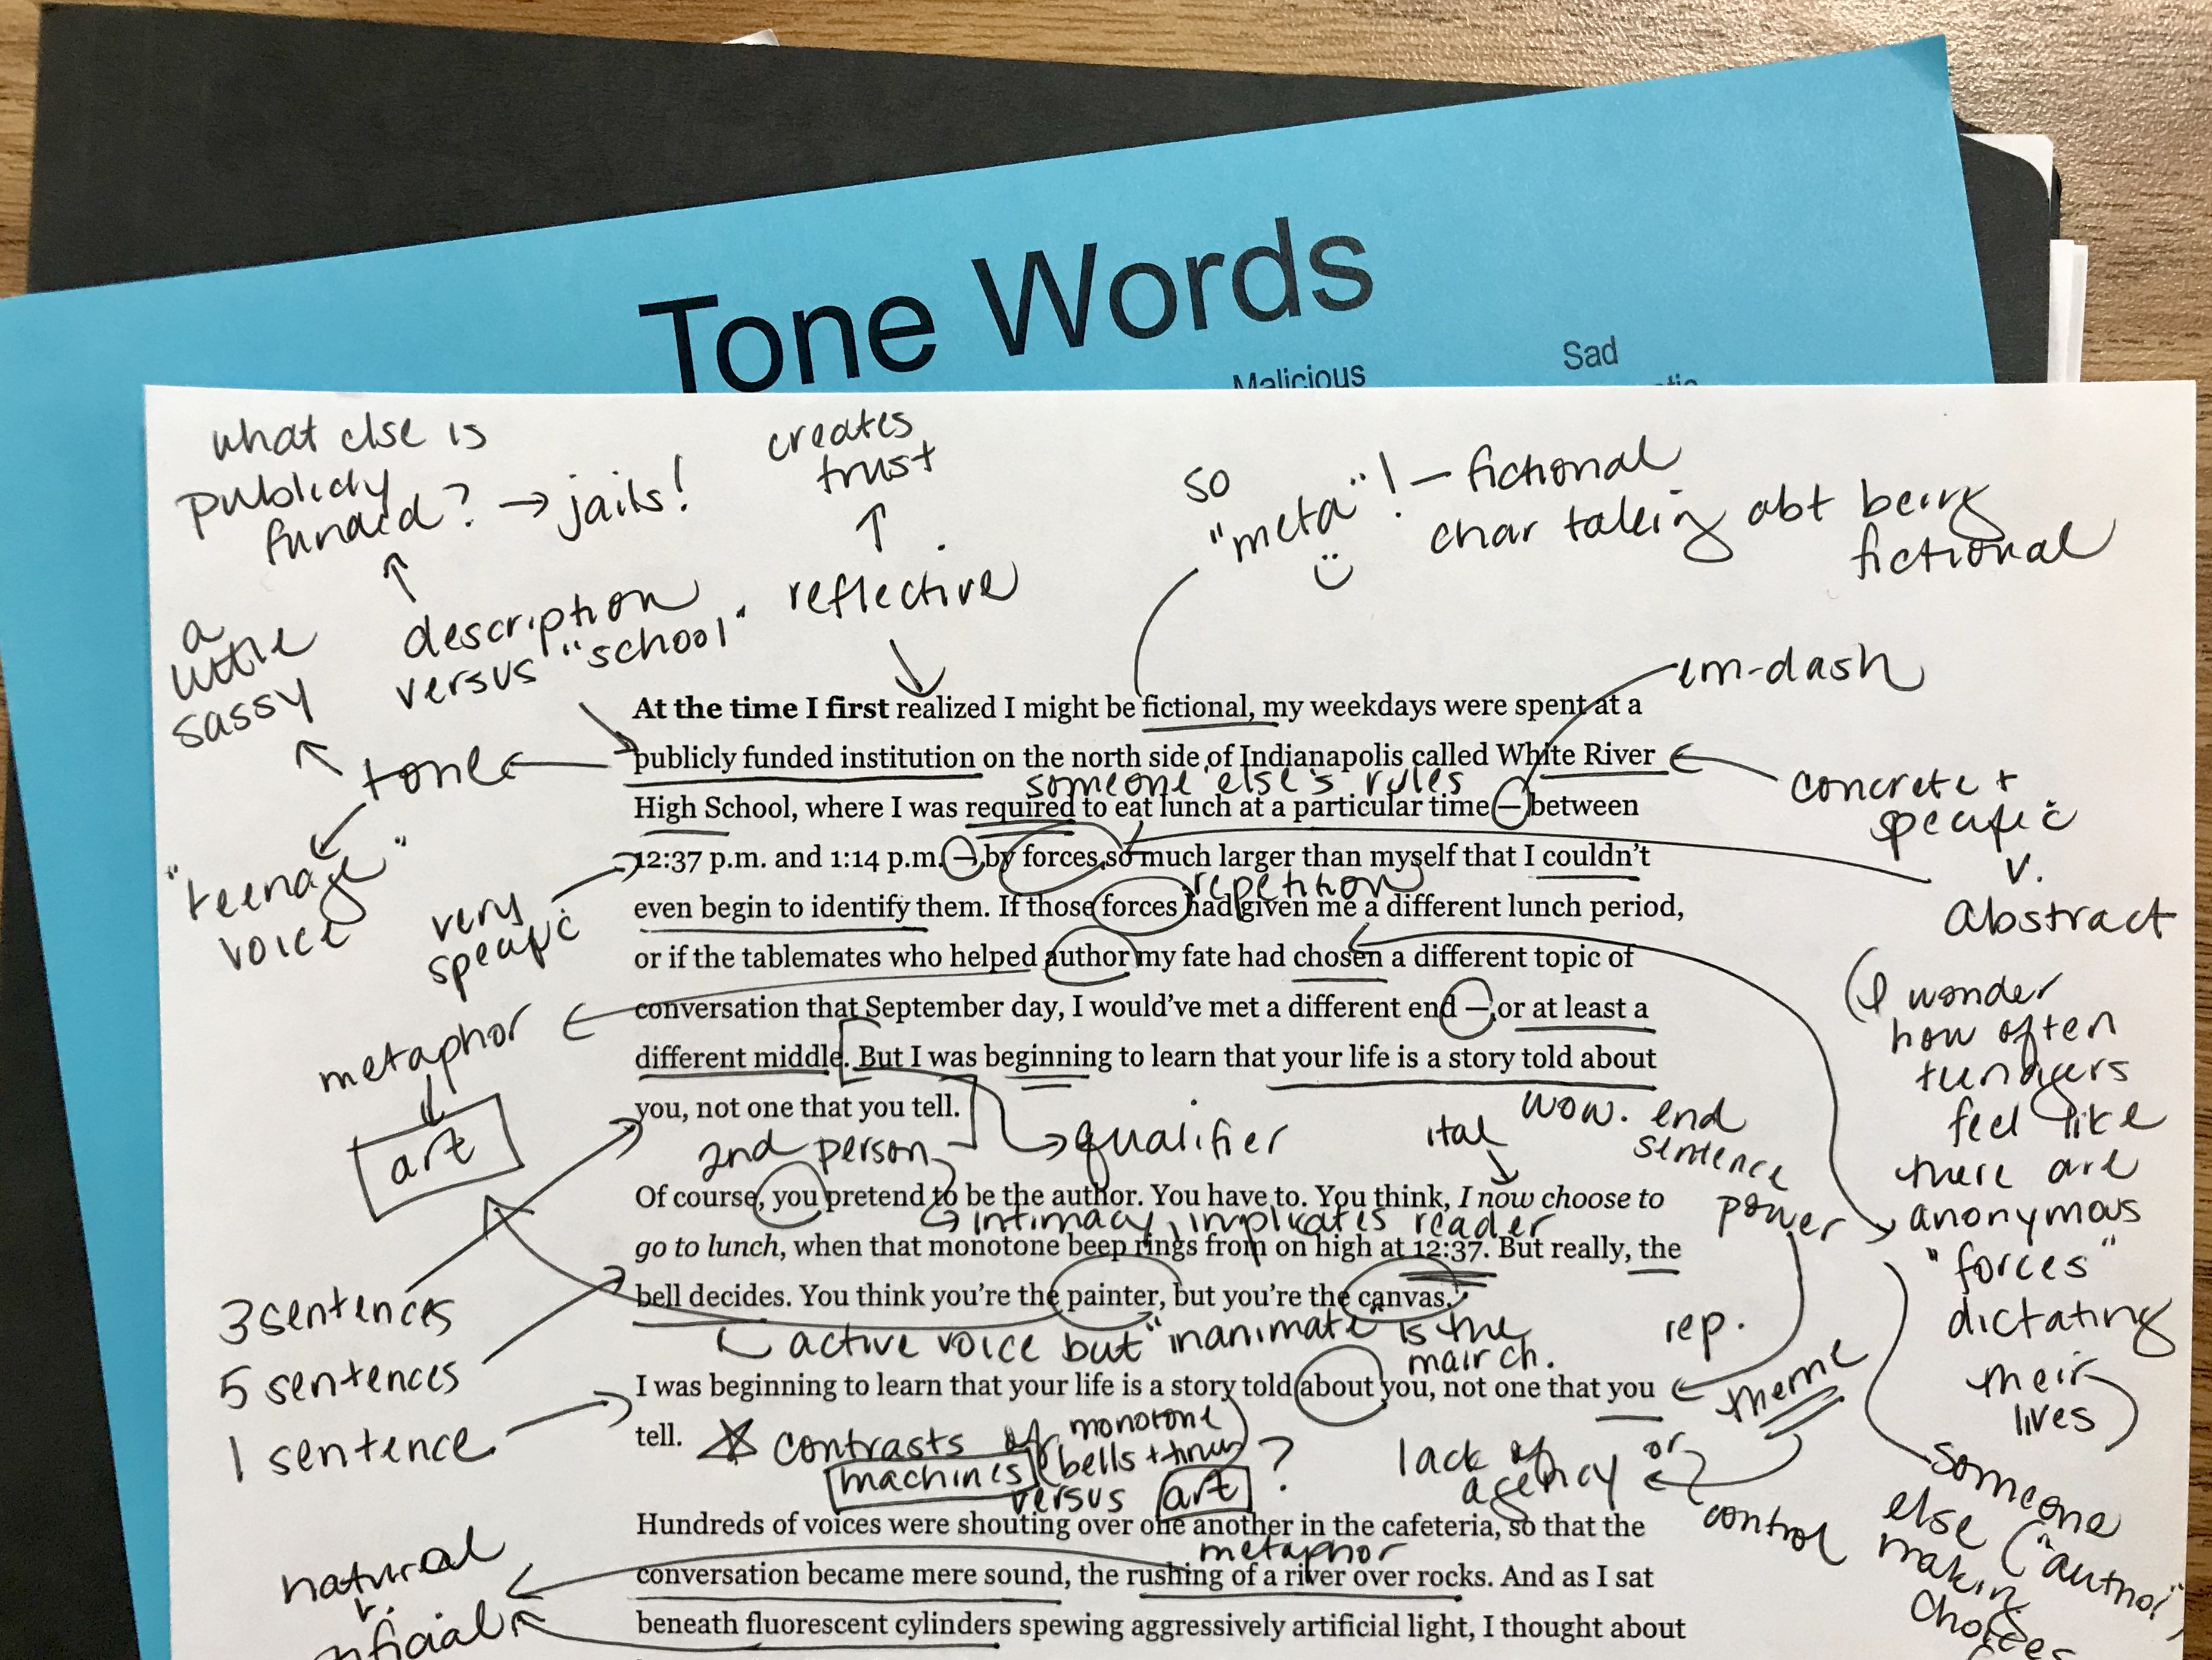 Tone Words
Malicious
Sad
what else is
publicly
funded? → jails!
creates
trust
↑
reflective
so
"meta"! — fictional
char talking abt being
fictional
a
little
sassy
description
versus "school"
tone
"teenage"
voice
em-dash
concrete +
specific
v.
abstract
At the time I first realized I might be fictional, my weekdays were spent at a
publicly funded institution on the north side of Indianapolis called White River
someone else's rules
High School, where I was required to eat lunch at a particular time — between
12:37 p.m. and 1:14 p.m. — by forces so much larger than myself that I couldn't
very
specific
repetition
even begin to identify them. If those forces had given me a different lunch period,
or if the tablemates who helped author my fate had chosen a different topic of
conversation that September day, I would've met a different end — or at least a
metaphor
art
different middle. But I was beginning to learn that your life is a story told about
you, not one that you tell.
wow. end
sentence
power
2nd person
qualifier
ital
(I wonder
how often
teenagers
feel like
there are
anonymous
"forces"
dictating
their
lives)
Of course, you pretend to be the author. You have to. You think, I now choose to
intimacy, implicates reader
go to lunch, when that monotone beep rings from on high at 12:37. But really, the
bell decides. You think you're the painter, but you're the canvas.
3 sentences
5 sentences
1 sentence
active voice but "inanimate" is the
main ch.
rep.
theme
I was beginning to learn that your life is a story told about you, not one that you
tell.
contrasts of monotone
machines (bells + time)
versus art ?
lack of
agency or
control
someone
else ("author")
making
choices
Hundreds of voices were shouting over one another in the cafeteria, so that the
metaphor
conversation became mere sound, the rushing of a river over rocks. And as I sat
beneath fluorescent cylinders spewing aggressively artificial light, I thought about
natural
v.